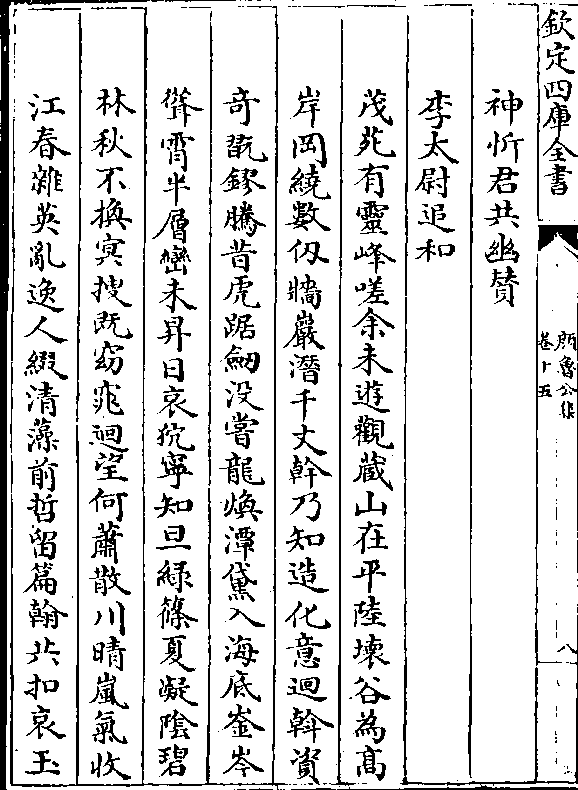 欽定四庫全書
顔魯公集
卷十五
八
神忻君共幽賛
李太尉追和
茂苑有靈峰嗟余未遊觀藏山在平陸壊谷為髙
岸岡繞數仭牆巖潛千丈幹乃知造化意迴斡資
奇翫鏐騰昔虎踞劔没嘗龍煥潭黛入海底崟岑
聳霄半層巒未昇日哀狖寧知旦緑篠夏凝隂碧
林秋不換冥搜既窈窕迴望何蕭散川晴嵐氣收
江春雜英亂逸人綴清藻前哲留篇翰共扣哀玉